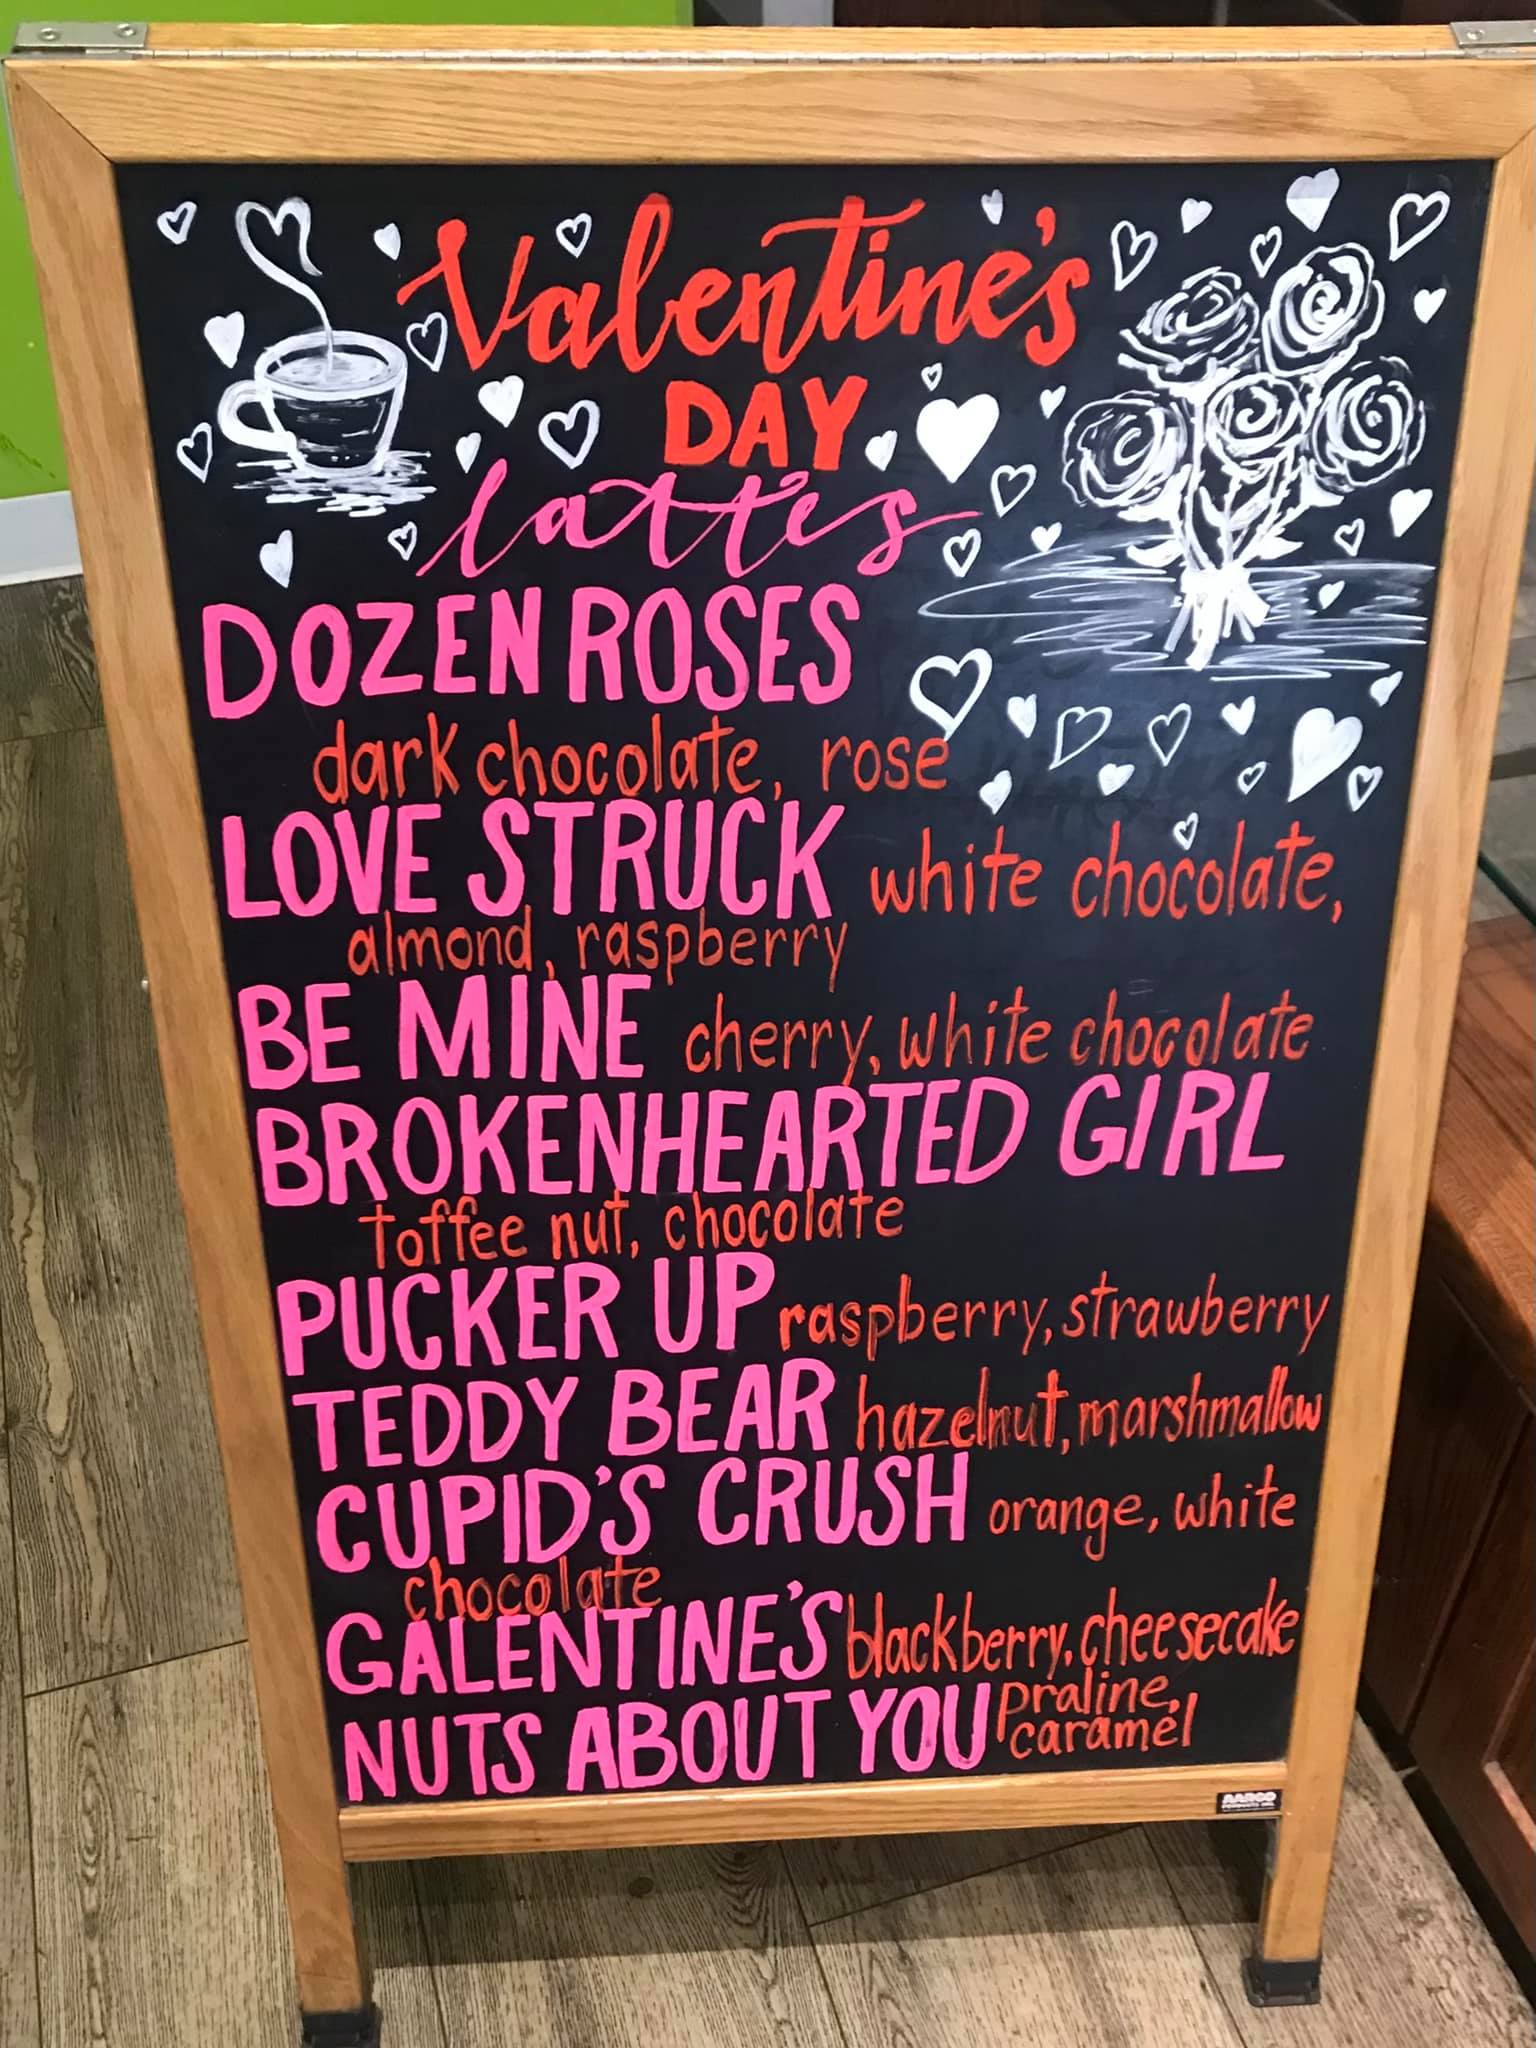 Valentine's
DAY
lattes
DOZEN ROSES
dark chocolate, rose
LOVE STRUCK white chocolate,
almond, raspberry
BE MINE cherry, white chocolate
BROKENHEARTED GIRL
toffee nut, chocolate
PUCKER UP raspberry, strawberry
TEDDY BEAR hazelnut, marshmallow
CUPID'S CRUSH orange, white
chocolate
GALENTINE'S blackberry, cheesecake
NUTS ABOUT YOU praline,
caramel
AARCO
PRODUCTS INC.